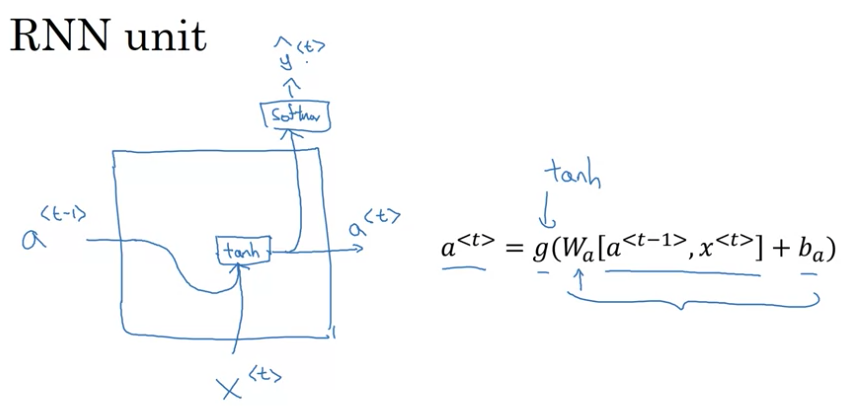 RNN unit
ŷ^<t>
softmax
a^<t-1>
tanh
a^<t>
x^<t>
tanh
a^<t> = g(W_a[a^<t-1>, x^<t>] + b_a)